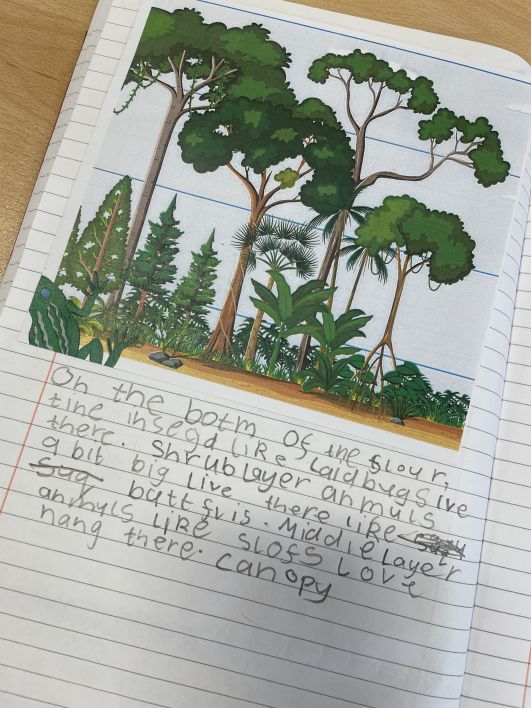 On the botm of the flour,
tine insegd like ladbugs ive
there. Shrub layer anmuls
a bit big live there like
buttfris. Middle layer
anmuls like slofs love
hang there. canopy